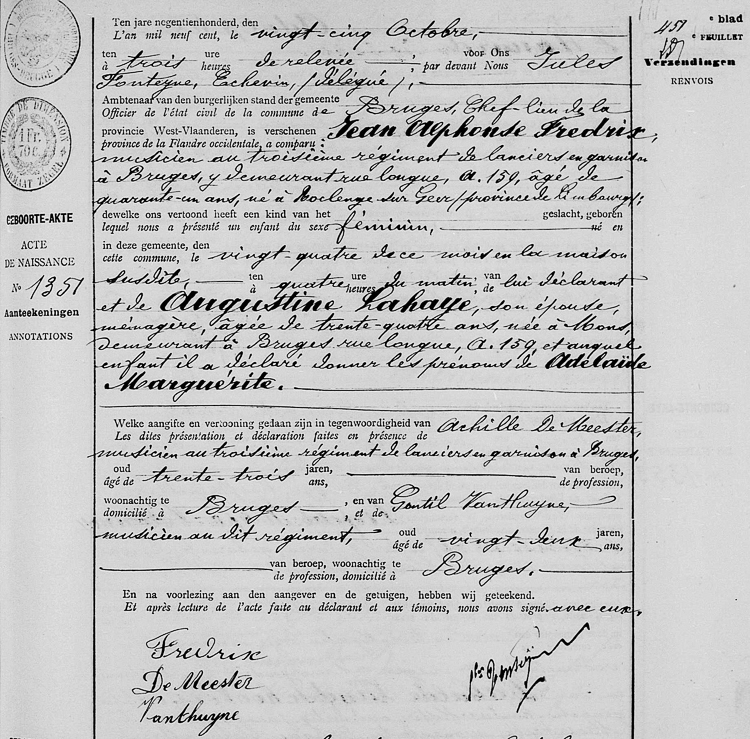 Ten jare negentienhonderd, den
L'an mil neuf cent, le vingt-cinq Octobre,
ten ure voor Ons
à trois heures de relevée, par devant Nous Jules
Fonteyne, Echevin, (délégué),
Ambtenaar van den burgerlijken stand der gemeente
Officier de l'état civil de la commune de Bruges, Chef-lieu de la
provincie West-Vlaanderen, is verschenen
province de la Flandre occidentale, a comparu: Jean Alphonse Fredrix,
musicien au troisième régiment de lanciers en garnison
à Bruges, y demeurant rue longue, A. 159, âgé de
quarante-un ans, né à Roclenge-sur Geer (province de Limbourg);
dewelke ons vertoond heeft een kind van het geslacht, geboren
lequel nous a présenté un enfant du sexe féminin, né en
in deze gemeente, den
cette commune, le vingt-quatre de ce mois en la maison
susdite, ten ure van
à quatre heures du matin, de lui déclarant
et de Augustine Lahaye, son épouse,
ménagère, âgée de trente-quatre ans, née à Mons,
demeurant à Bruges rue longue, A. 159, et auquel
enfant il a déclaré donner les prénoms de Adelaïde
Marguérite.
Welke aangifte en vertooning gedaan zijn in tegenwoordigheid van
Les dites présentation et déclaration faites en présence de Achille De Meester,
musicien au troisième régiment de lanciers en garnison à Bruges,
oud jaren, van beroep,
âgé de trente-trois ans, de profession,
woonachtig te , en van
domicilié à Bruges , et de Gentil Vanthuyne,
musicien au dit régiment, oud jaren,
âgé de vingt-deux ans,
van beroep, woonachtig te
de profession, domicilié à Bruges.
En na voorlezing aan den aangever en de getuigen, hebben wij geteekend.
Et après lecture de l'acte faite au déclarant et aux témoins, nous avons signé avec eux.
Fredrix
De Meester
Vanthuyne
GEBOORTE-AKTE
ACTE
DE NAISSANCE
No 1351
Aanteekeningen
ANNOTATIONS
e blad
e FEUILLET
451
Verzendingen
RENVOIS